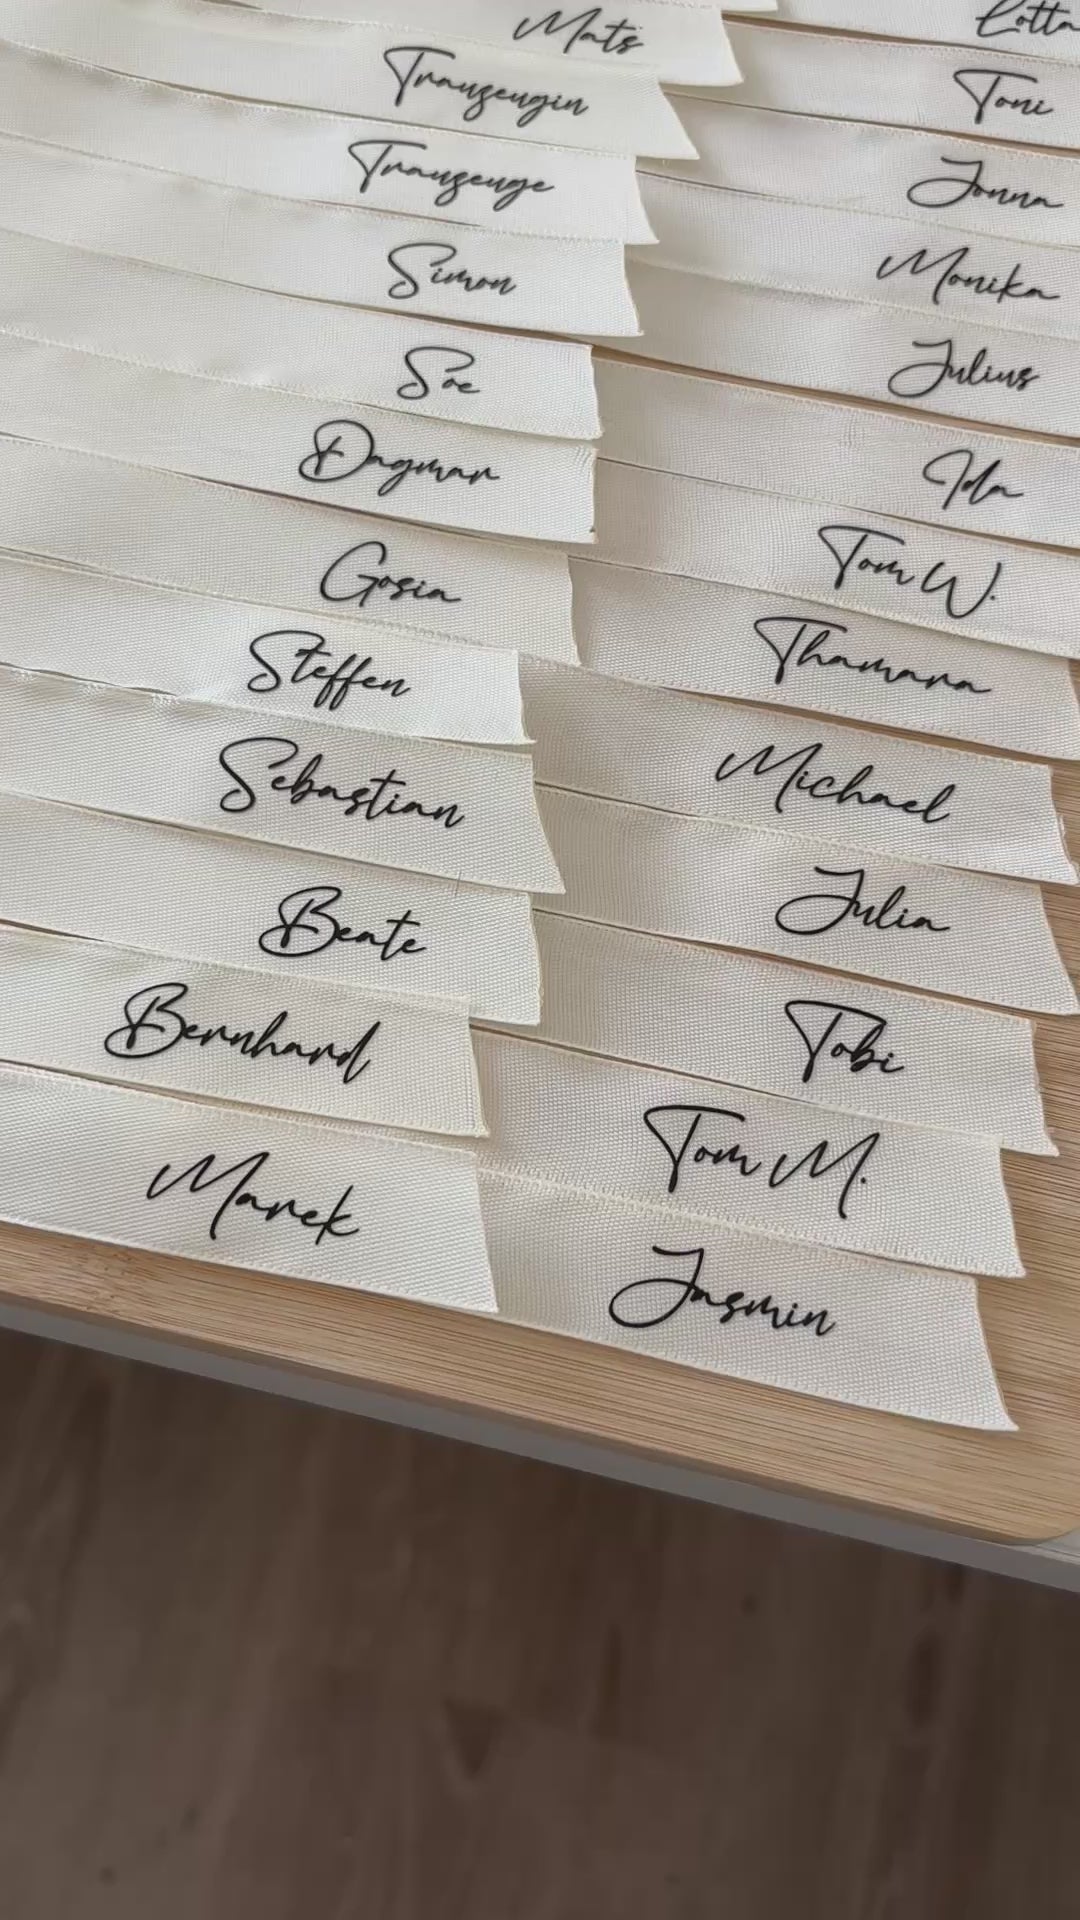 Mats
Trauzeugin
Trauzeuge
Simon
Soe
Dagmar
Gosia
Steffen
Sebastian
Beate
Bernhard
Marek
Lotta
Toni
Jonna
Monika
Julius
Ida
Tom W.
Thamara
Michael
Julia
Tobi
Tom M.
Jasmin